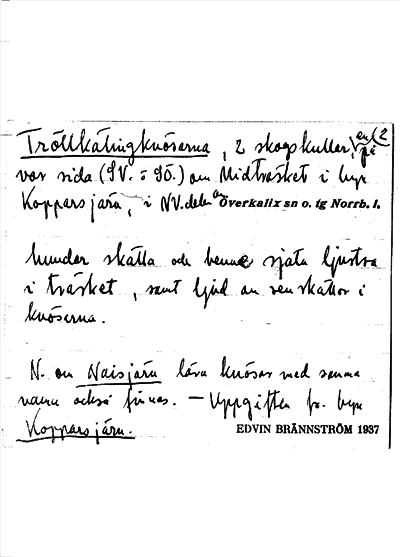 Tröllkälingknösarna, 2 skogskullar, en (2
på
var sida (SV. o SÖ.) om Midträsket i byn
Kopparsjärn, i NV. delen av Överkalix sn o. tg Norrb. l.
hundar skälla och henne själv ljustra
i träsket, samt ljud av renskällor i
knösarna.
N. om Naisjärn lära knösar med samma
namn också finnas. — Uppgiften fr. byn
Kopparsjärn.
EDVIN BRÄNNSTRÖM 1937